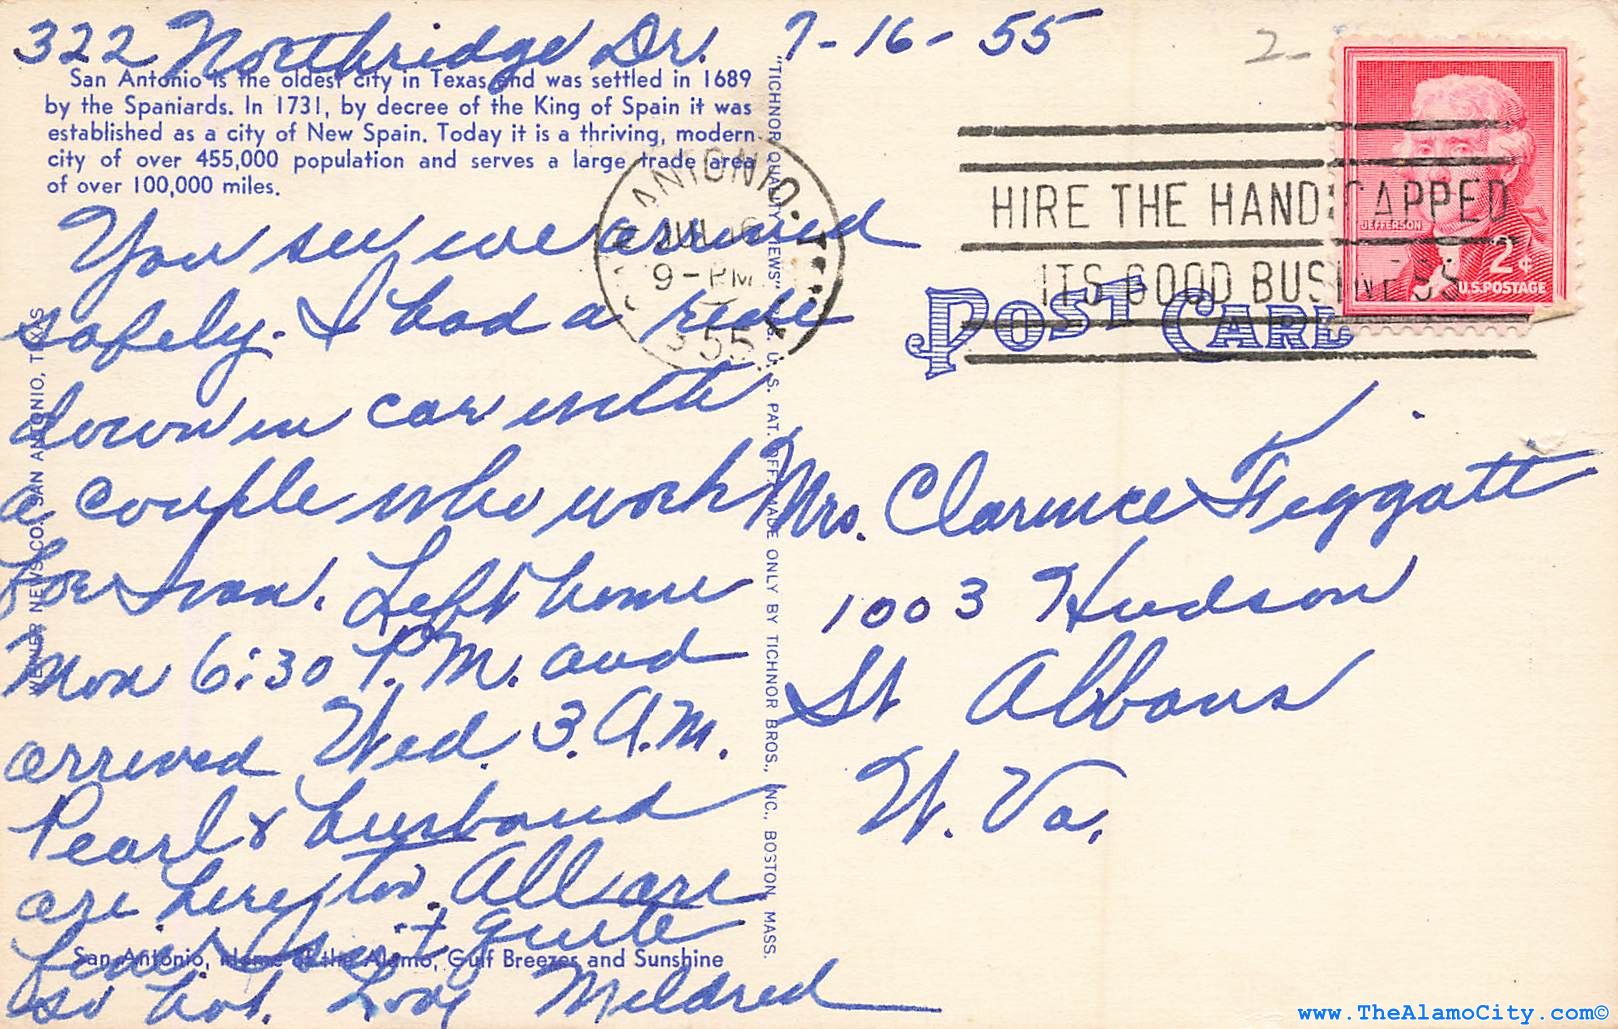 322 Northridge Dr. 7-16-55
San Antonio is the oldest city in Texas and was settled in 1689
by the Spaniards. In 1731, by decree of the King of Spain it was
established as a city of New Spain. Today it is a thriving, modern
city of over 455,000 population and serves a large trade area
of over 100,000 miles.
You see we arrived
safely. I had a ride
down in car with
a couple who work
for Ivan. Left home
Mon 6:30 P.M. and
arrived Wed. 3. A.M.
Pearl & husband
are here, too. All are
fine & isn't quite
so hot. Love Mildred
San Antonio, Home of the Alamo, Gulf Breezes and Sunshine
WEINER NEWS CO., SAN ANTONIO, TEXAS
"TICHNOR QUALITY VIEWS" REG. U. S. PAT. OFF. MADE ONLY BY TICHNOR BROS., INC., BOSTON, MASS.
SAN ANTONIO,
JUL 16
9-PM
1955
2-
HIRE THE HANDICAPPED
ITS GOOD BUSINESS
JEFFERSON
2¢
U.S. POSTAGE
POST CARD
Mrs. Clarence Figgatt
1003 Hudson
St Albans
W. Va.
www.TheAlamoCity.com©